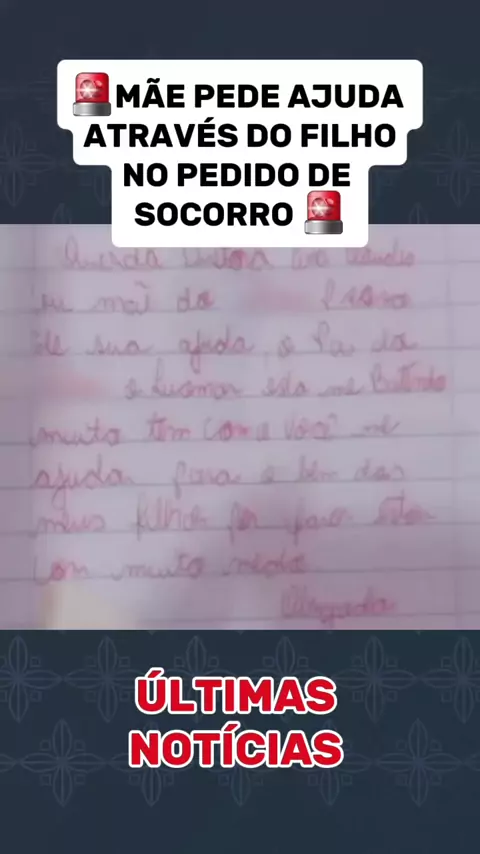 🚨MÃE PEDE AJUDA
ATRAVÉS DO FILHO
NO PEDIDO DE
SOCORRO 🚨
Querida
eu mai do
de sua ajuda, o Pa da
esta me Batendo
muito tem como você me
ajuda para o bem dos
meus filhos por favor estou
com muito medo
Obrigada
ÚLTIMAS
NOTÍCIAS